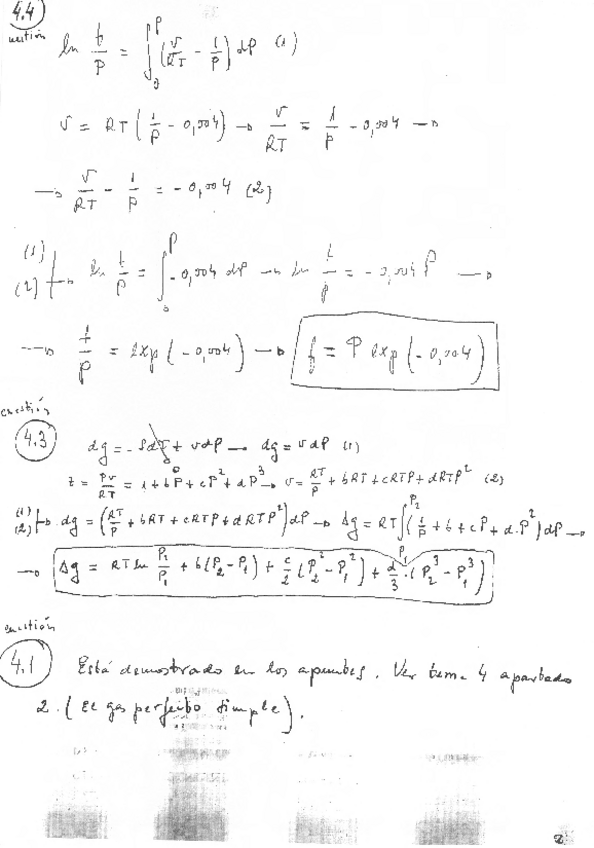 4.4
cuestión
ln f/P = ∫₀ᴾ (v/RT - 1/P) dP (1)
v = RT (1/P - 0,004) → v/RT = 1/P - 0,004 →
→ v/RT - 1/P = -0,004 (2)
(1) (2) → ln f/P = ∫₀ᴾ -0,004 dP → ln f/P = -0,004 P →
→ f/P = exp (-0,004) → f = P exp (-0,004)
cuestión
4.3
dg = -SdT + vdP → dg = vdP (1)
z = Pv/RT = 1 + bP + cP² + dP³ → v = RT/P + bRT + cRTP + dRTP² (2)
(1) (2) → dg = (RT/P + bRT + cRTP + dRTP²) dP → Δg = RT ∫_P₁^P₂ (1/P + b + cP + d.P²) dP →
→ Δg = RT ln P₂/P₁ + b(P₂ - P₁) + c/2 (P₂² - P₁²) + d/3 · (P₂³ - P₁³)
cuestión
4.1
Está demostrado en los apuntes. Ver tema 4 apartado
2. (El gas perfecto simple).